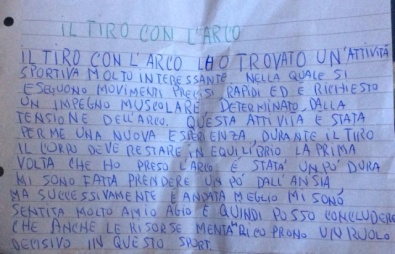 IL TIRO CON L'ARCO
IL TIRO CON L'ARCO LO TROVATO UN'ATTIVITÀ
SPORTIVA MOLTO INTERESSANTE NELLA QUALE SI
ESEGUONO MOVIMENTI PRECISI RAPIDI ED È RICHIESTO
UN IMPEGNO MUSCOLARE DETERMINATO DALLA
TENSIONE DELL'ARCO. QUESTA ATTIVITÀ È STATA
PER ME UNA NUOVA ESPERIENZA, DURANTE IL TIRO
IL CORPO DEVE RESTARE IN EQUILIBRIO LA PRIMA
VOLTA CHE HO PRESO L'ARCO È STATA UN PO' DURA
MI SONO FATTA PRENDERE UN PO' DALL'ANSIA
MA SUCCESSIVAMENTE È ANDATA MEGLIO MI SONO
SENTITA MOLTO A MIO AGIO E QUINDI POSSO CONCLUDERE
CHE ANCHE LE RISORSE MENTALI RICOPRONO UN RUOLO
DECISIVO IN QUESTO SPORT.